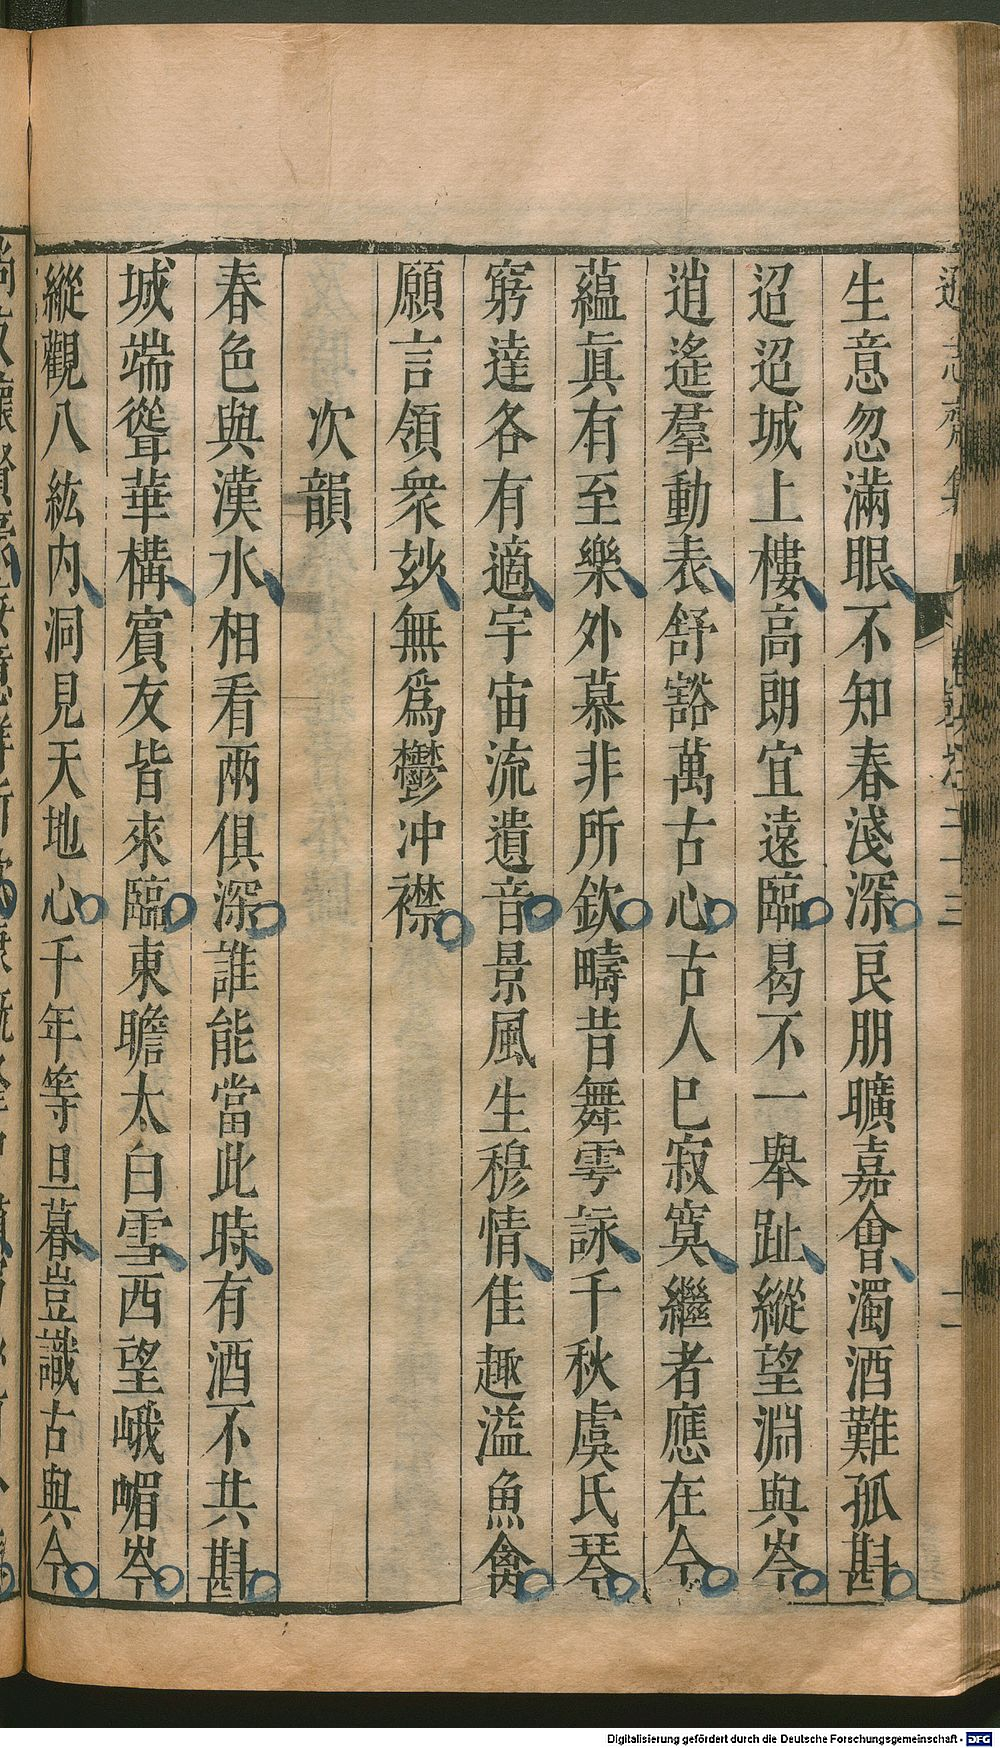 生意忽滿眼不知春淺深良朋曠嘉會濁酒難孤斟
迢迢城上樓高朗宜遠臨曷不一舉趾縱望淵與岑
逍遙羣動表舒豁萬古心古人已寂寞繼者應在今
蘊眞有至樂外慕非所欽疇昔舞雩詠千秋虞氏琴
窮達各有適宇宙流遺音景風生穆情佳趣溢魚禽
願言領衆玅無爲鬱冲襟
次韻
春色與漢水相看兩俱深誰能當此時有酒不共斟
城端聳華構賓友皆來臨東瞻太白雪西望峨嵋岑
縱觀八紘内洞見天地心千年等旦暮豈識古與今
Digitalisierung gefördert durch die Deutsche Forschungsgemeinschaft - DFG